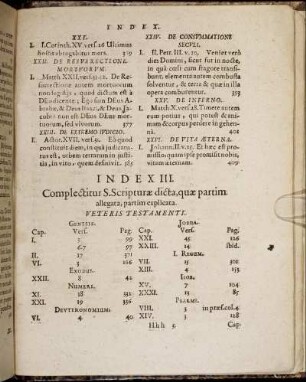 INDEX.
XXI.
I. I. Corinth. XV. vers. 26 Ultimus
hostis abrogabitur mors. 369
XXII. DE RESURRECTIONE
MORTUORUM.
I. Match. XXII. vers. 31. 32. De Re-
surrectione autem mortuorum
non legistis, quid dictum est à
DEo dicente; Ego sum DEus A-
brahæ, & Deus Isaac, & Deus Ja-
cobi: non est DEus DEus mor-
tuorum, sed vivorum. 377
XXIII. DE EXTREMO JUDICIO.
I. Actor. XVII. vers. 31. Eò quod
constituit diem, in quo judicatu-
rus est, orbem terrarum in ju-
stitia, in viro, quem definivit. 385
XXIV. DE CONSUMMATIONE
SECULI.
I. II. Petr. III. v. 10. Veniet verò
dies Domini, sicut fur in nocte,
in quâ cœli cum stragore transi-
bunt, elementa autem combusta
solventur, & terra & quæ in illa
opera comburentur. 393
XXV. DE INFERNO.
I. Matth. X. vers. 28. Timete autem
eum potius, qui potest & ani-
mam & corpus perdere in gehen-
nâ. 401
XXVI. DE VITA ÆTERNA.
I. I. Johann. II. v. 25. Et hæc est pro-
missio quam ipse promisit nobis,
vitam æternam. 409
INDEX III.
Complectitur S. Scripturæ dicta, quæ partim
allegata, partim explicata.
VETERIS TESTAMENTI.
GENESIS.
Cap. Vers. Pag.
I. 2 99
6.7 97
II. 17 571
VI. 5
EXODUS.
XXII. 8 42
NUMERI.
XI. 18 352
XXI. 19 356
DEUTERONOMIUM:
VI. 4 40.
JOSUA.
Cap. Vers. Pag.
XXI. 45 126
XXIII. 14 ibid.
I. REGUM.
VI. 15 302
XIII. 4 153
JOB.
XV. 7 104
XXXI. 15 87
PSALMI.
VIII. 3 in præf. col. 4
XIV. 3 128
Hhh 3 Cap.